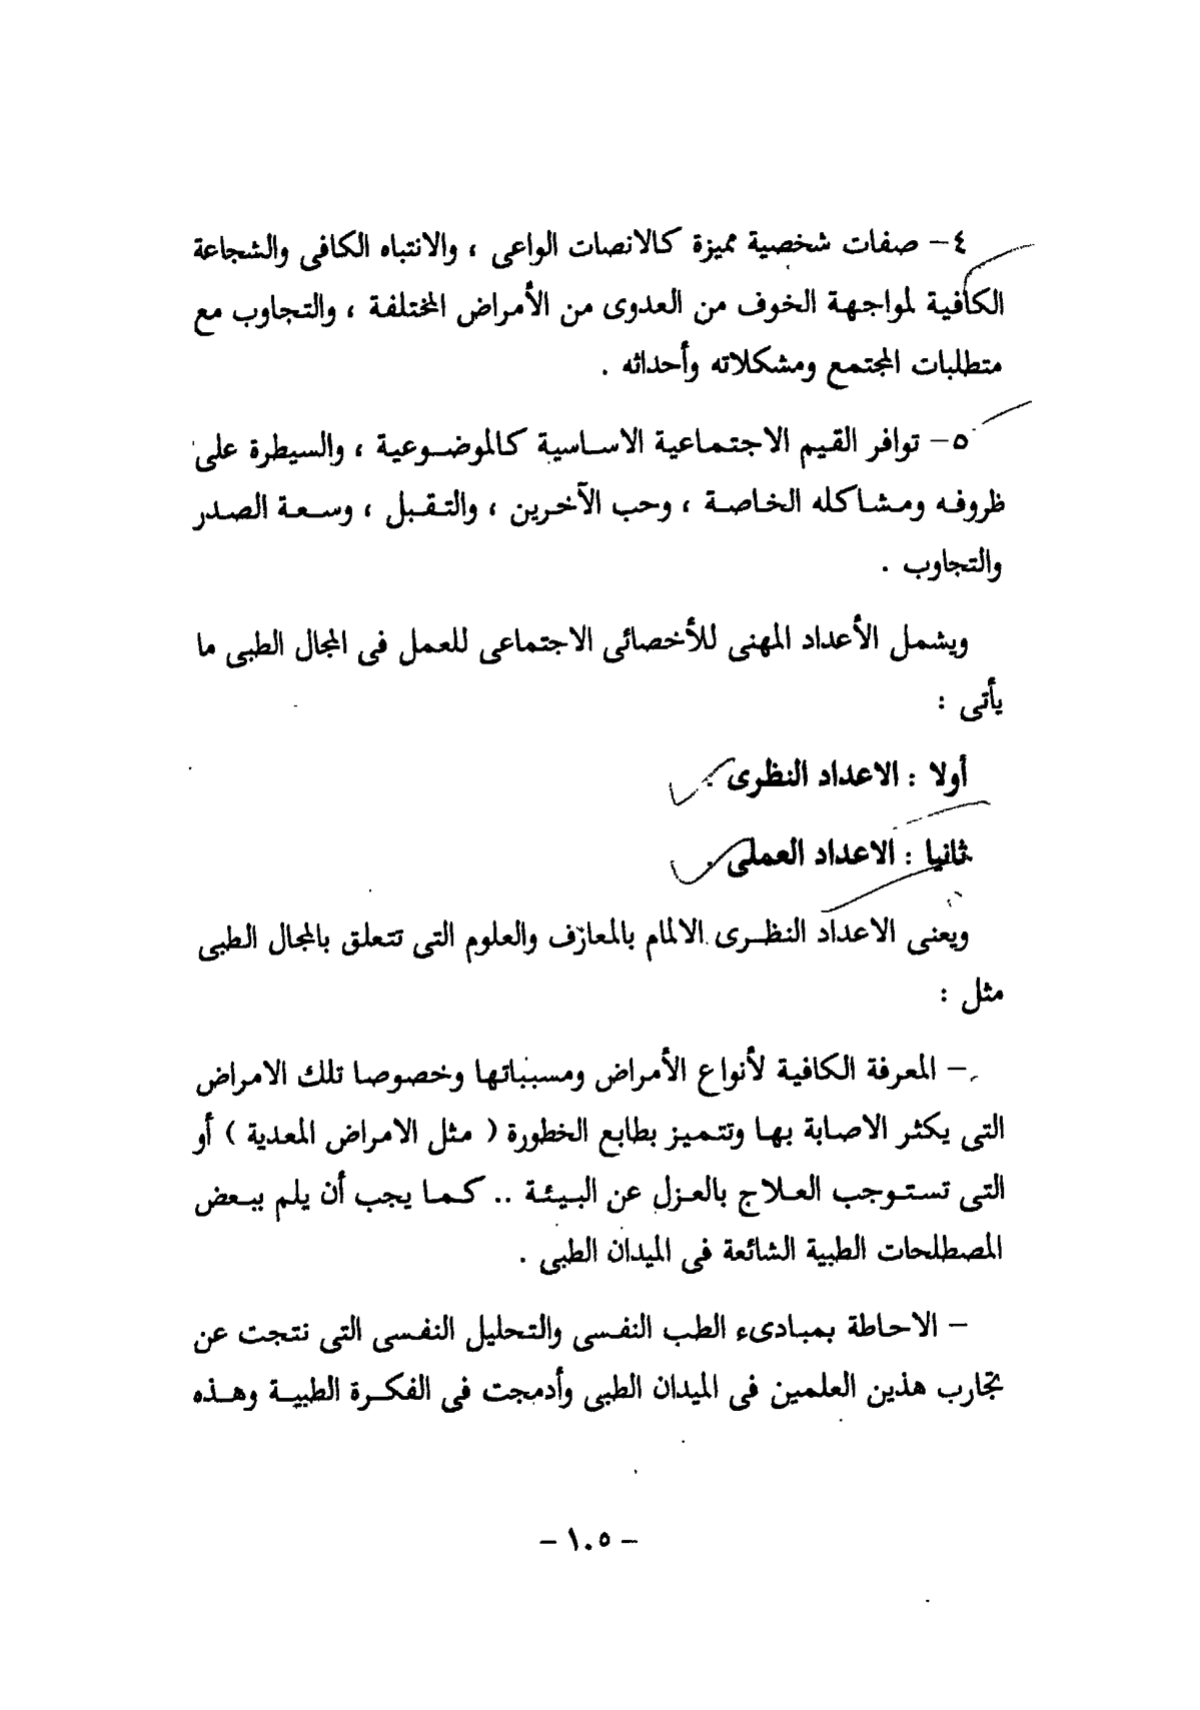 ٤- صفات شخصية مميزة كالانصات الواعى ، والانتباه الكافى والشجاعة
الكافية لمواجهة الخوف من العدوى من الأمراض المختلفة ، والتجاوب مع
متطلبات المجتمع ومشكلاته وأحداثه .
٥- توافر القيم الاجتماعية الاساسية كالموضوعية ، والسيطرة على
ظروفه ومشاكله الخاصة ، وحب الآخرين ، والتقبل ، وسعة الصدر
والتجاوب .
ويشمل الأعداد المهنى للأخصائى الاجتماعى للعمل فى المجال الطبى ما
يأتى :
أولا : الاعداد النظرى .
ثانيا : الاعداد العملى .
ويعنى الاعداد النظرى الالمام بالمعارف والعلوم التى تتعلق بالمجال الطبى
مثل :
- المعرفة الكافية لأنواع الأمراض ومسبباتها وخصوصا تلك الامراض
التى يكثر الاصابة بها وتتميز بطابع الخطورة ( مثل الامراض المعدية ) أو
التى تستوجب العلاج بالعزل عن البيئة .. كما يجب أن يلم ببعض
المصطلحات الطبية الشائعة فى الميدان الطبى .
- الاحاطة بمبادىء الطب النفسى والتحليل النفسى التى نتجت عن
تجارب هذين العلمين فى الميدان الطبى وأدمجت فى الفكرة الطبية وهذه
- ١٠٥ -